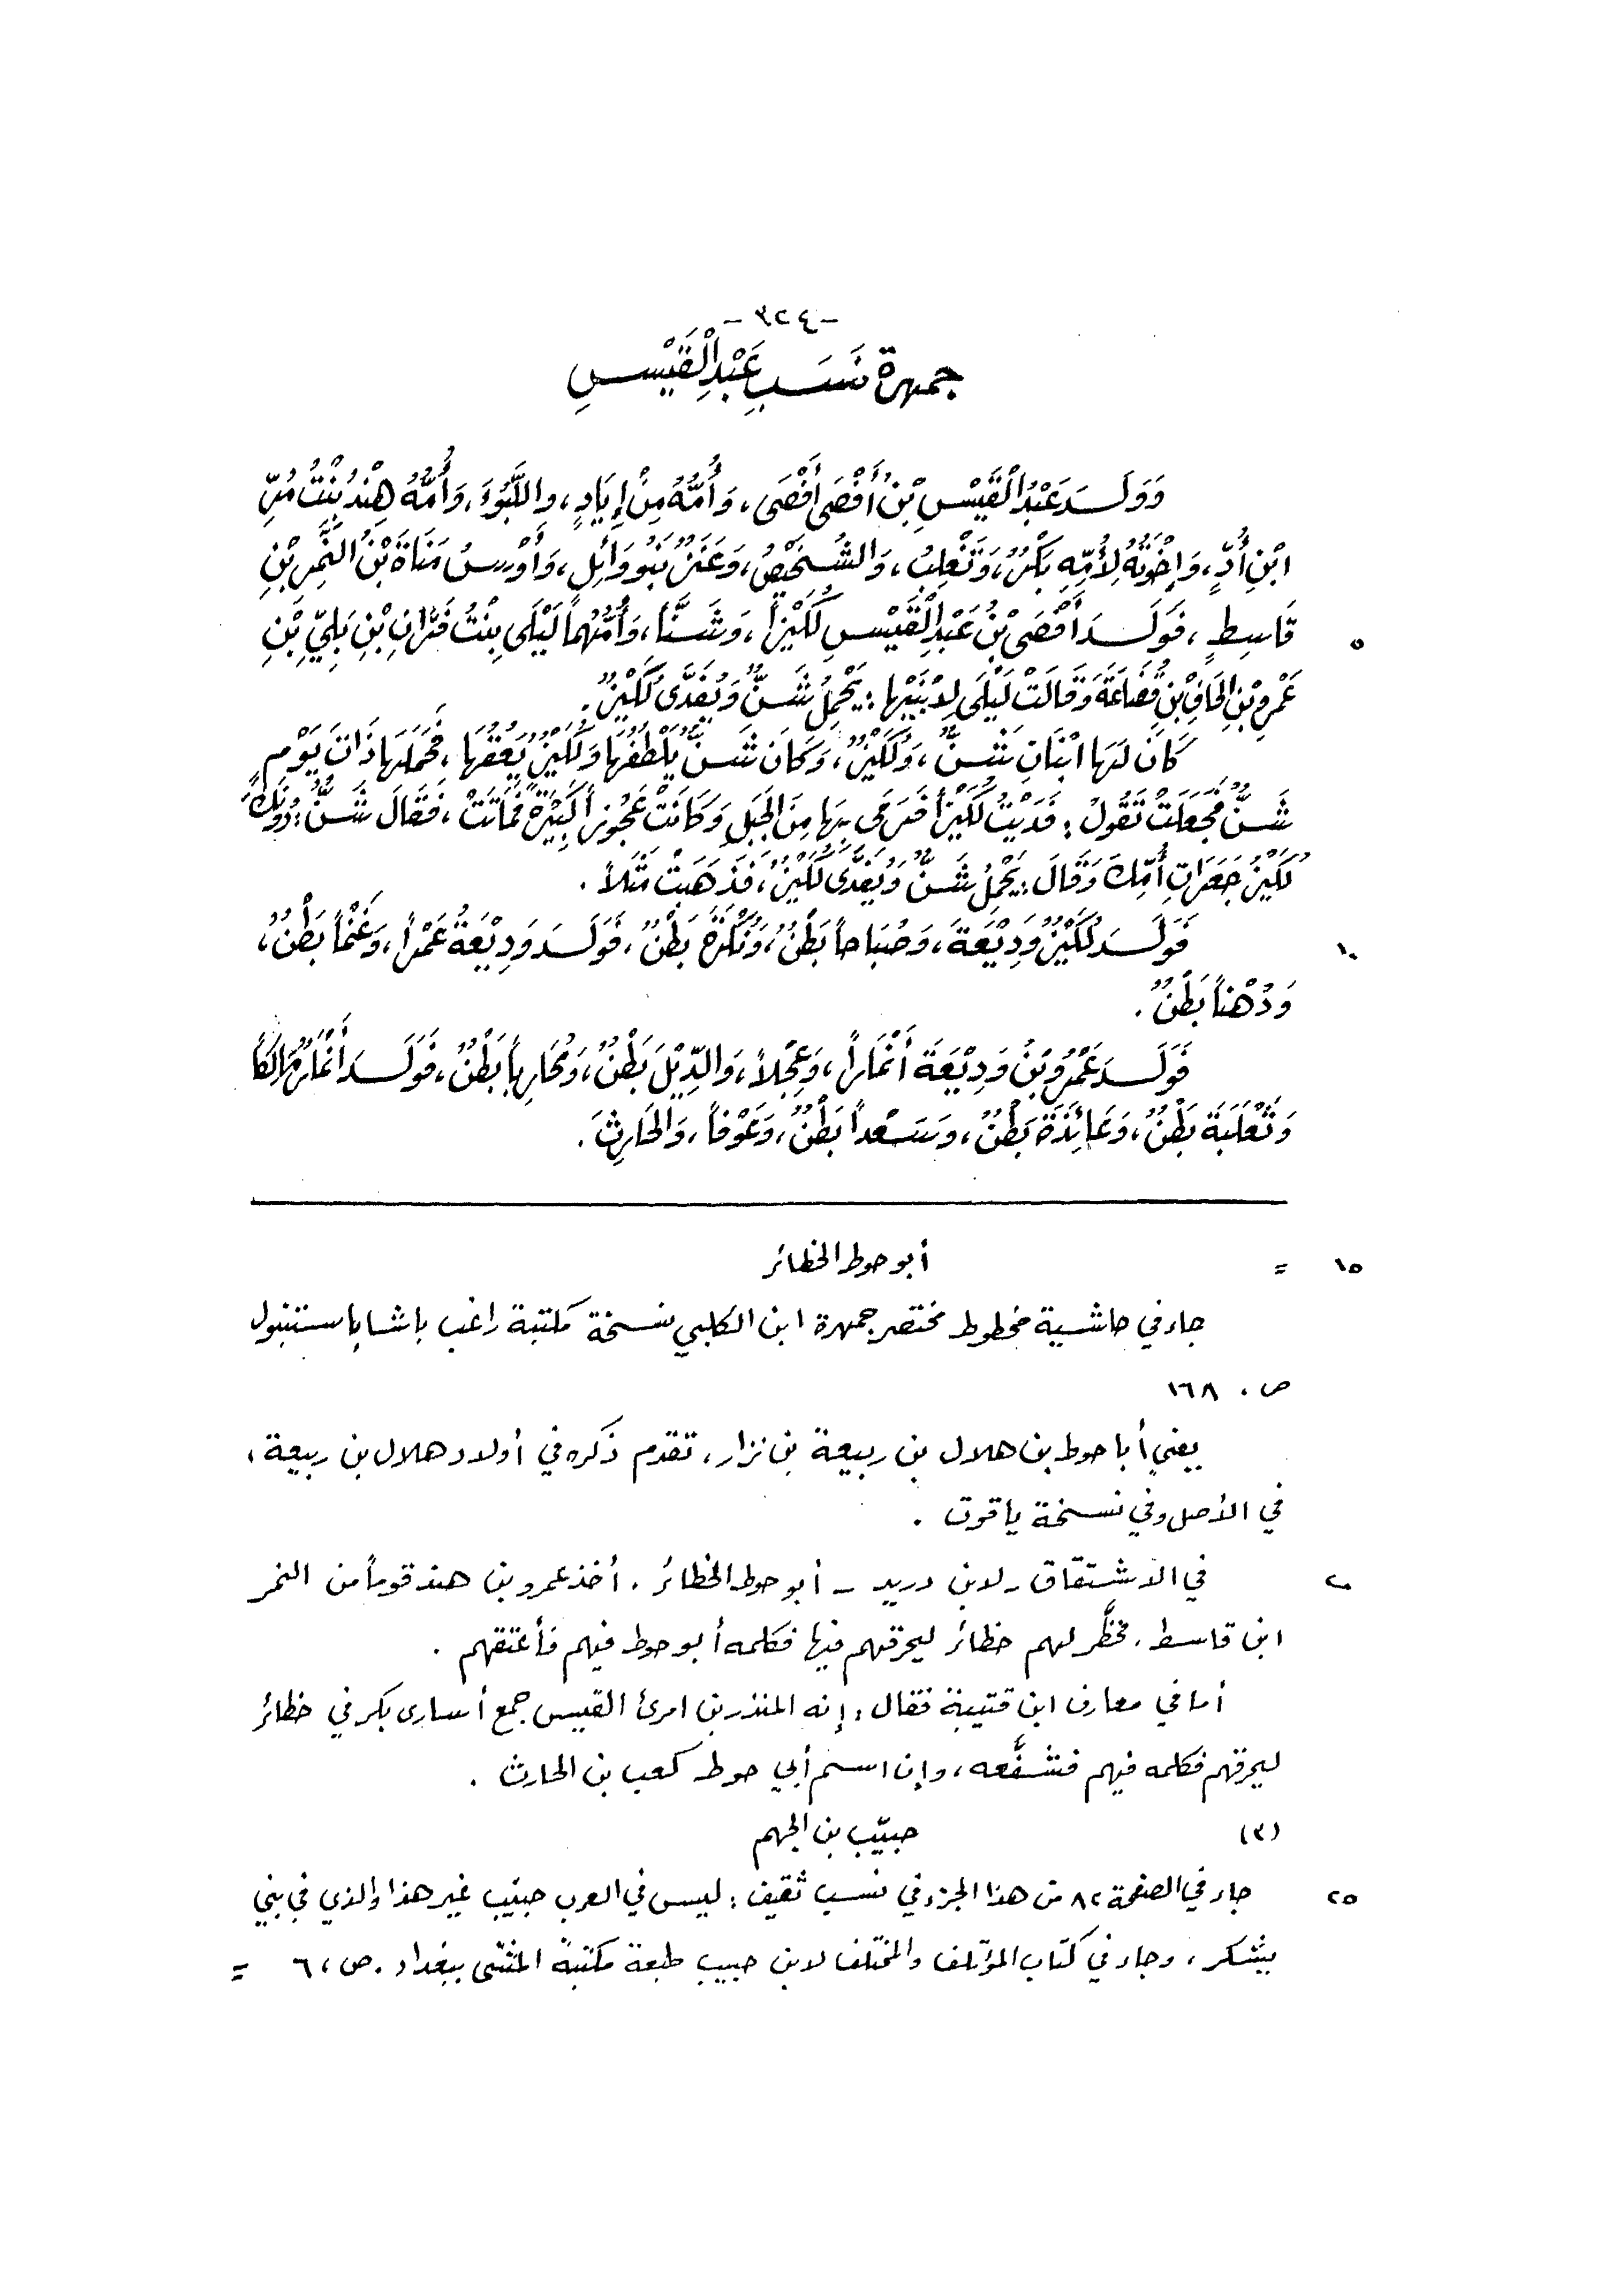 -٣٢٤-
جمهرة نَسَبِ عَبْدِ الْقَيْسِ
وَوَلَدَ عَبْدُ الْقَيْسِ بْنُ أَفْصَى أَفْصَى، وَأُمُّهُ مِنْ إِيَادٍ، واللَّبُوءَ، وَأُمُّهُ هِنْدُ بِنْتُ مُرِّ
ابْنِ أُدٍّ، وَإِخْوَتُهُ لِأُمِّهِ بَكْرٌ، وَتَغْلِبُ، وَالشُّخَيْصُ، وَعَنْزٌ بَنُو وَائِلٍ، وَأَوْسُ مَنَاةَ بْنُ النَّمِرِ بْنِ
٥ قَاسِطٍ، فَوَلَدَ أَفْصَى بْنُ عَبْدِ الْقَيْسِ لُكَيْزاً، وَشَنّاً، وَأُمُّهُمَا لَيْلَى بِنْتُ فَرَّانِ بْنِ بَلِيِّ بْنِ
عَمْرِو بْنِ الحَافِ بْنِ قُضَاعَةَ وَقَالَتْ لَيْلَى لِابْنَيْهَا: يَحْمِلُ شَنٌّ وَيُفَدَّى لُكَيْزٌ.
كَانَ لَهَا ابْنَانِ شَنٌّ، وَلُكَيْزٌ، وَكَانَ شَنٌّ يُلْطِفُهَا وَلُكَيْزٌ يَعُقُّهَا، فَحَمَلَهَا ذَاتَ يَوْمٍ
شَنٌّ فَجَعَلَتْ تَقُولُ: فَدَيْتُ لُكَيْزاً فَرَمَى بِهَا مِنَ الجَبَلِ وَكَانَتْ عَجُوزاً كَبِيْرَةً فَمَاتَتْ، فَقَالَ شَنٌّ: دُونَكَ
لُكَيْزُ جَعَرَاتِ أُمِّكَ وَقَالَ: يَحْمِلُ شَنٌّ وَيُفَدَّى لُكَيْزٌ، فَذَهَبَتْ مَثَلاً.
١٠ فَوَلَدَ لُكَيْزٌ وَدِيْعَةَ، وَصُبَاحاً بَطْنٌ، وَنُكْرَةَ بَطْنٌ، فَوَلَدَ وَدِيْعَةُ عَمْراً، وَغَنْماً بَطْنٌ،
وَدُهْناً بَطْنٌ.
فَوَلَدَ عَمْرُو بْنُ وَدِيْعَةَ أَنْمَاراً، وَعِجْلاً، وَالدِّيْلَ بَطْنٌ، وَمُحَارِباً بَطْنٌ، فَوَلَدَ أَنْمَارٌ مَالِكاً
وَثَعْلَبَةَ بَطْنٌ، وَعَائِذَةَ بَطْنٌ، وَسَعْداً بَطْنٌ، وَعَوْفاً، وَالحَارِثَ.
١٥ = أبو حوط الخطائر
جاء في حاشية مخطوط مختصر جمهرة ابن الكلبي نسخة مكتبة راغب باشا باستنبول
ص، ١٦٨
يعني أبا حوط بن هلال بن ربيعة بن نزار، تقدم ذكره في أولاد هلال بن ربيعة،
في الأصل وفي نسخة ياقوت.
٢٠ في الاشتقاق - لابن دريد - أبو حوط الخطائر. أخذ عمرو بن هند قوماً من النمر
ابن قاسط، فخظَّر لهم خطائر ليحرقهم فيها فكلمه أبو حوط فيهم فأعتقهم.
أما في معارف ابن قتيبة فقال: إنه المنذر بن امرئ القيس جمع أسارى بكر في خطائر
ليحرقهم فكلمه فيهم فشفَّعه، وإن اسم أبي حوط كعب بن الحارث.
(٣) حبيّب بن الجهم
٢٥ جاء في الصفحة ٨٢ من هذا الجزء في نسب ثقيف: ليس في العرب حبيّب غير هذا والذي في بني
يشكر، وجاء في كتاب المؤتلف والمختلف لابن حبيب طبعة مكتبة المثنّى ببغداد. ص، ٦ =